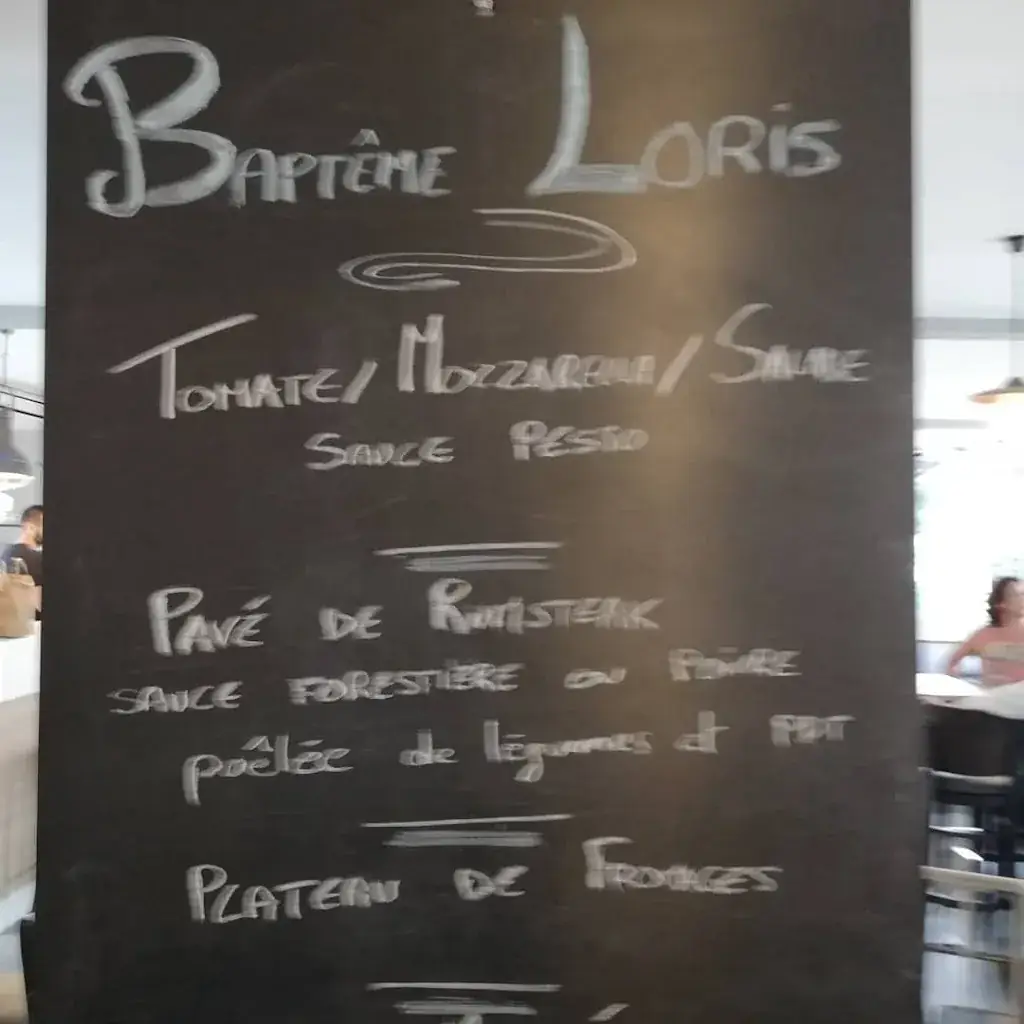 BAPTÊME LORIS
TOMATE/MOZZARELLA/SALADE
SAUCE PESTO
PAVÉ DE RUMSTEAK
SAUCE FORESTIÈRE OU POIVRE
poêlée de légumes et PDT
PLATEAU DE FROMAGES